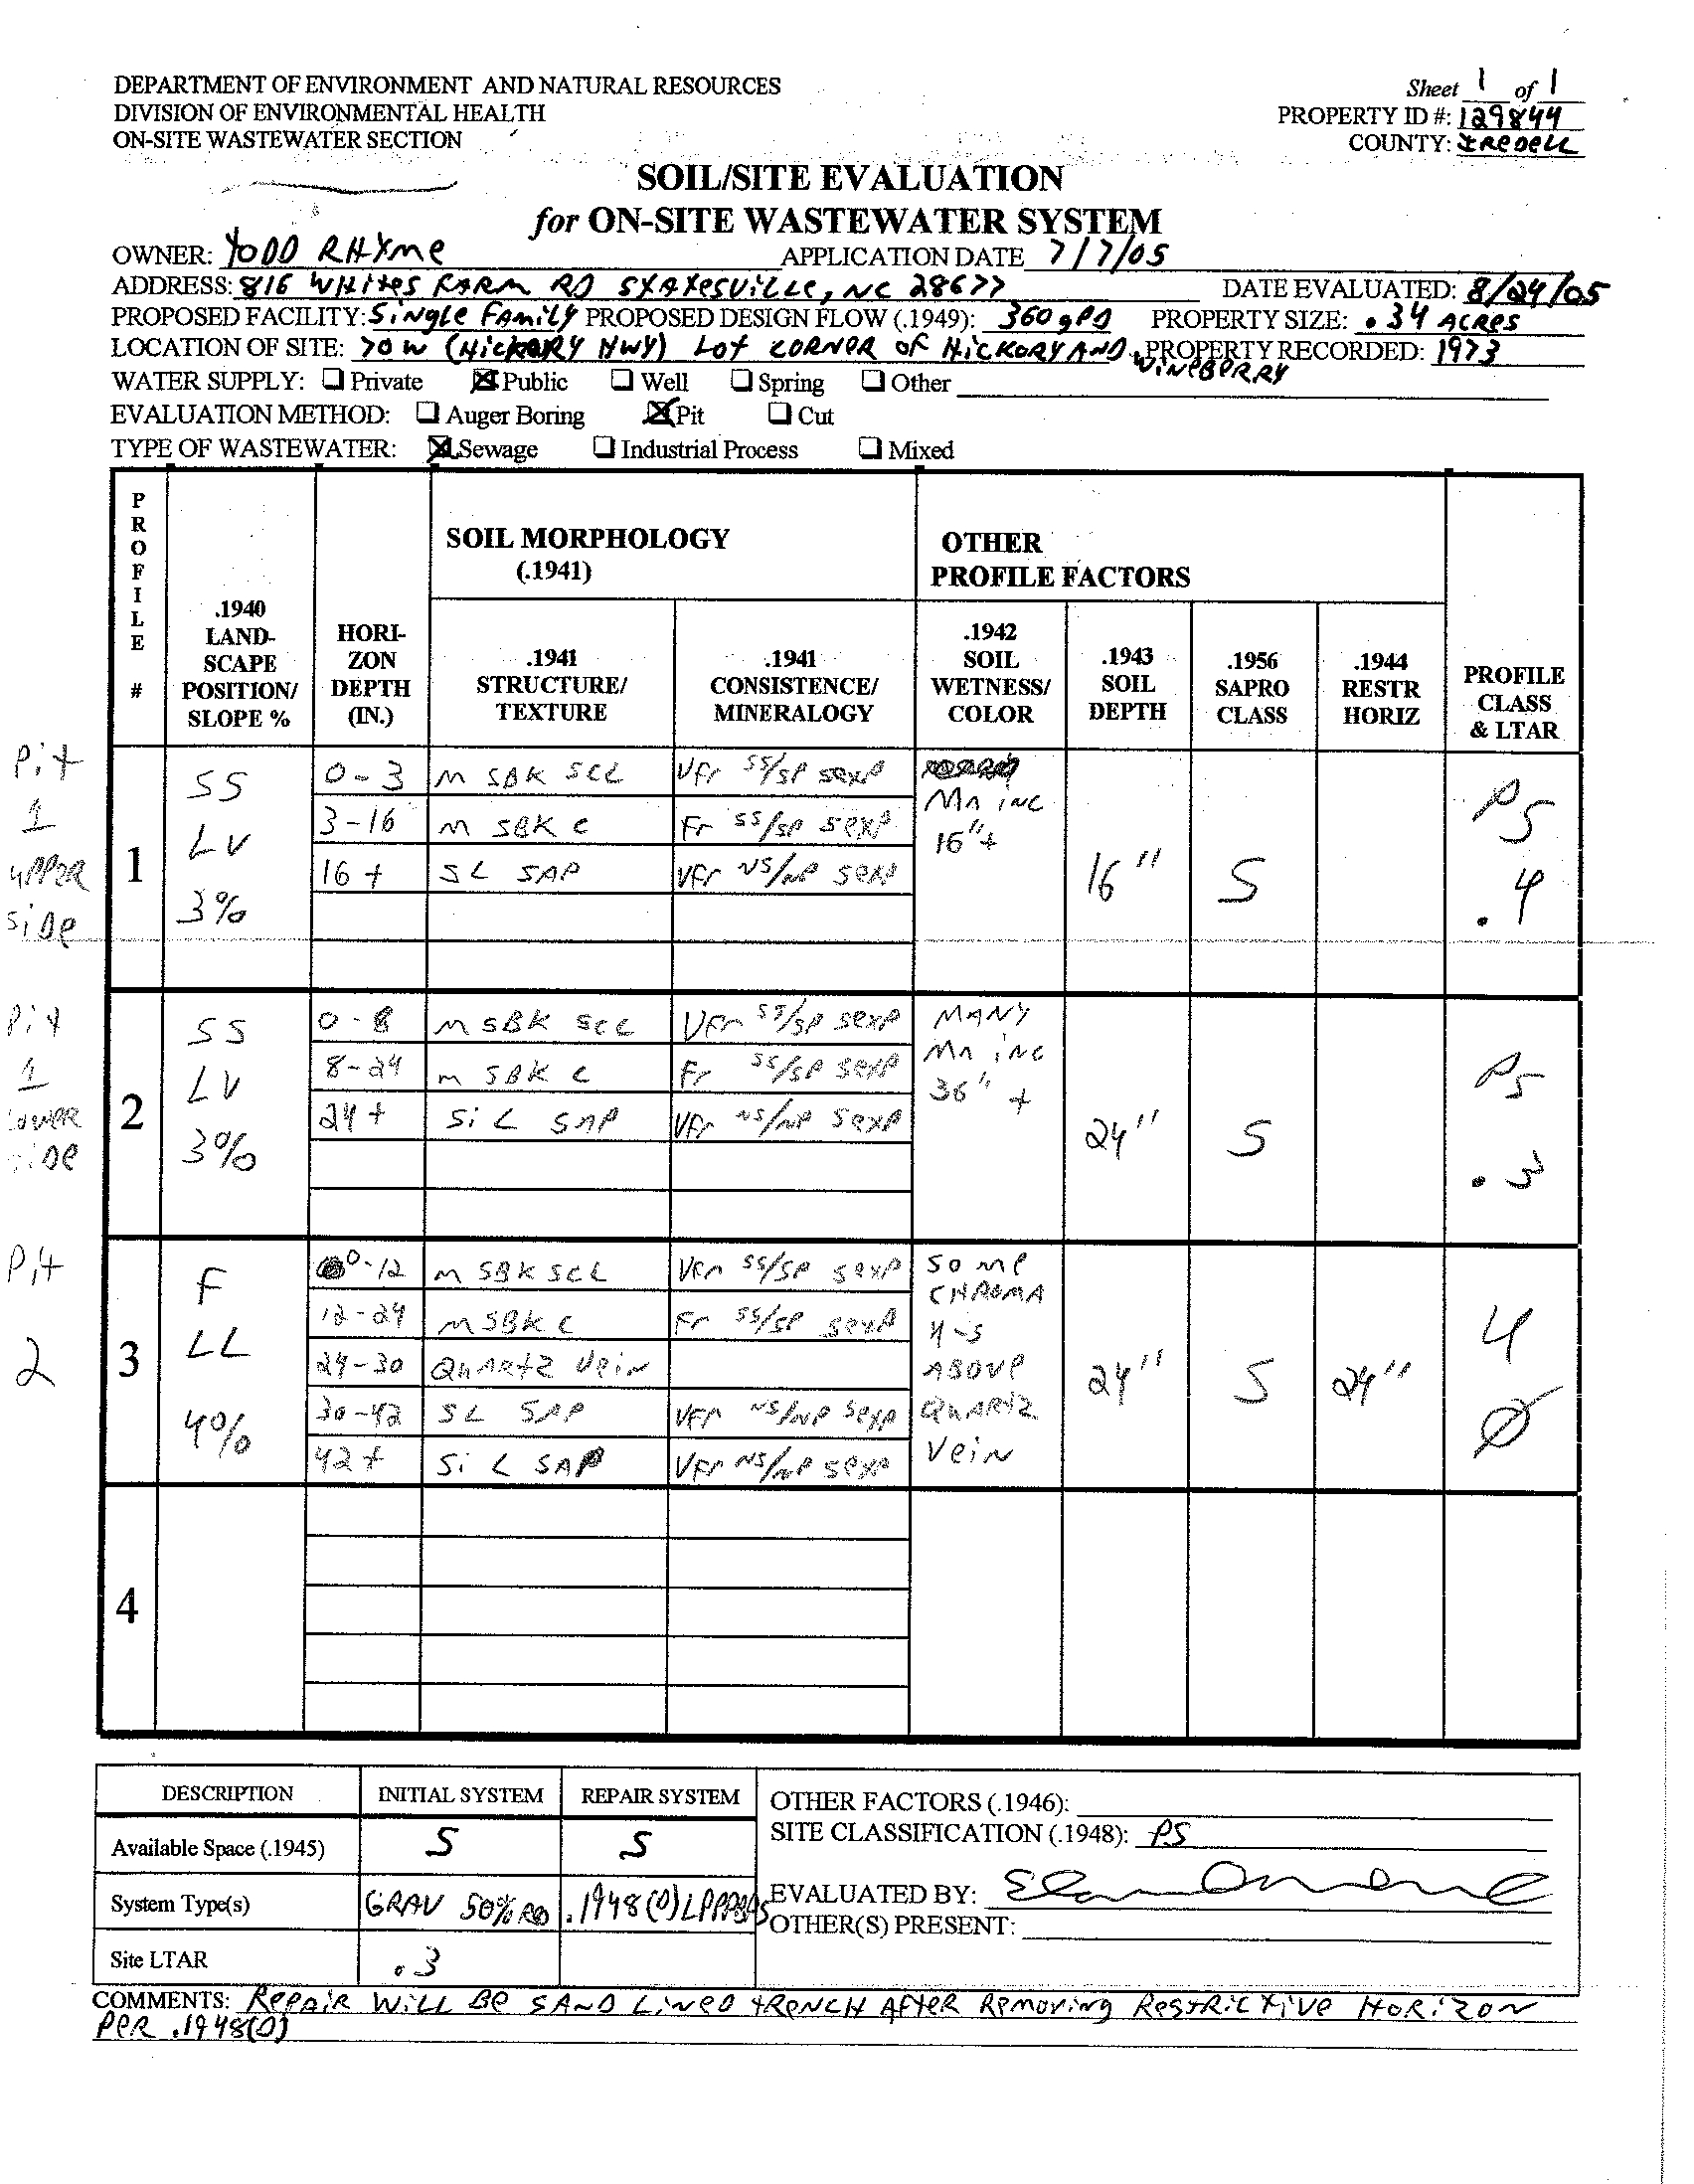 DEPARTMENT OF ENVIRONMENT AND NATURAL RESOURCES
DIVISION OF ENVIRONMENTAL HEALTH
ON-SITE WASTEWATER SECTION
Sheet 1 of 1
PROPERTY ID #: 129844
COUNTY: IREDELL
SOIL/SITE EVALUATION
for ON-SITE WASTEWATER SYSTEM
OWNER: TODD RHYME APPLICATION DATE 7/7/05
ADDRESS: 816 WHITES FARM RD STATESVILLE, NC 28677 DATE EVALUATED: 8/24/05
PROPOSED FACILITY: SINGLE FAMILY PROPOSED DESIGN FLOW (.1949): 360 gPD PROPERTY SIZE: .34 ACRES
LOCATION OF SITE: 70 W (HICKORY HWY) LOT CORNER OF HICKORY AND WINEBERRY PROPERTY RECORDED: 1973
WATER SUPPLY: Private Public Well Spring Other
EVALUATION METHOD: Auger Boring Pit Cut
TYPE OF WASTEWATER: Sewage Industrial Process Mixed
PROFILE #
.1940 LAND-SCAPE POSITION/ SLOPE %
HORI-ZON DEPTH (IN.)
SOIL MORPHOLOGY (.1941)
.1941 STRUCTURE/ TEXTURE
.1941 CONSISTENCE/ MINERALOGY
OTHER PROFILE FACTORS
.1942 SOIL WETNESS/ COLOR
.1943 SOIL DEPTH
.1956 SAPRO CLASS
.1944 RESTR HORIZ
PROFILE CLASS & LTAR
Pit 1 UPPER SIDE
1
SS LV 3%
0-3 M SBK SCL VFr SS/SP SEXP
3-16 M SBK C Fr SS/SP SEXP
16+ SL SAP VFr NS/NP SEXP
Mn INC 16"+
16" S PS .4
Pit 1 LOWER SIDE
2
SS LV 3%
0-8 M SBK SCL VFr SS/SP SEXP
8-24 M SBK C Fr SS/SP SEXP
24+ SiL SAP VFr NS/NP SEXP
MANY Mn INC 36"+
24" S PS .3
Pit 2
3
F LL 4%
0-12 M SBK SCL VFr SS/SP SEXP
12-24 M SBK C Fr SS/SP SEXP
24-30 QUARTZ VEIN
30-42 SL SAP VFr NS/NP SEXP
42+ SiL SAP VFr NS/NP SEXP
SOME CHROMA 4-5 ABOVE QUARTZ VEIN
24" S 24" U Ø
4
DESCRIPTION INITIAL SYSTEM REPAIR SYSTEM
Available Space (.1945) S S
System Type(s) GRAV 50% RD .1948(D)
Site LTAR .3
OTHER FACTORS (.1946):
SITE CLASSIFICATION (.1948): PS
EVALUATED BY:
OTHER(S) PRESENT:
COMMENTS: REPAIR WILL BE SAND LINED TRENCH AFTER REMOVING RESTRICTIVE HORIZON
PER .1948(D)